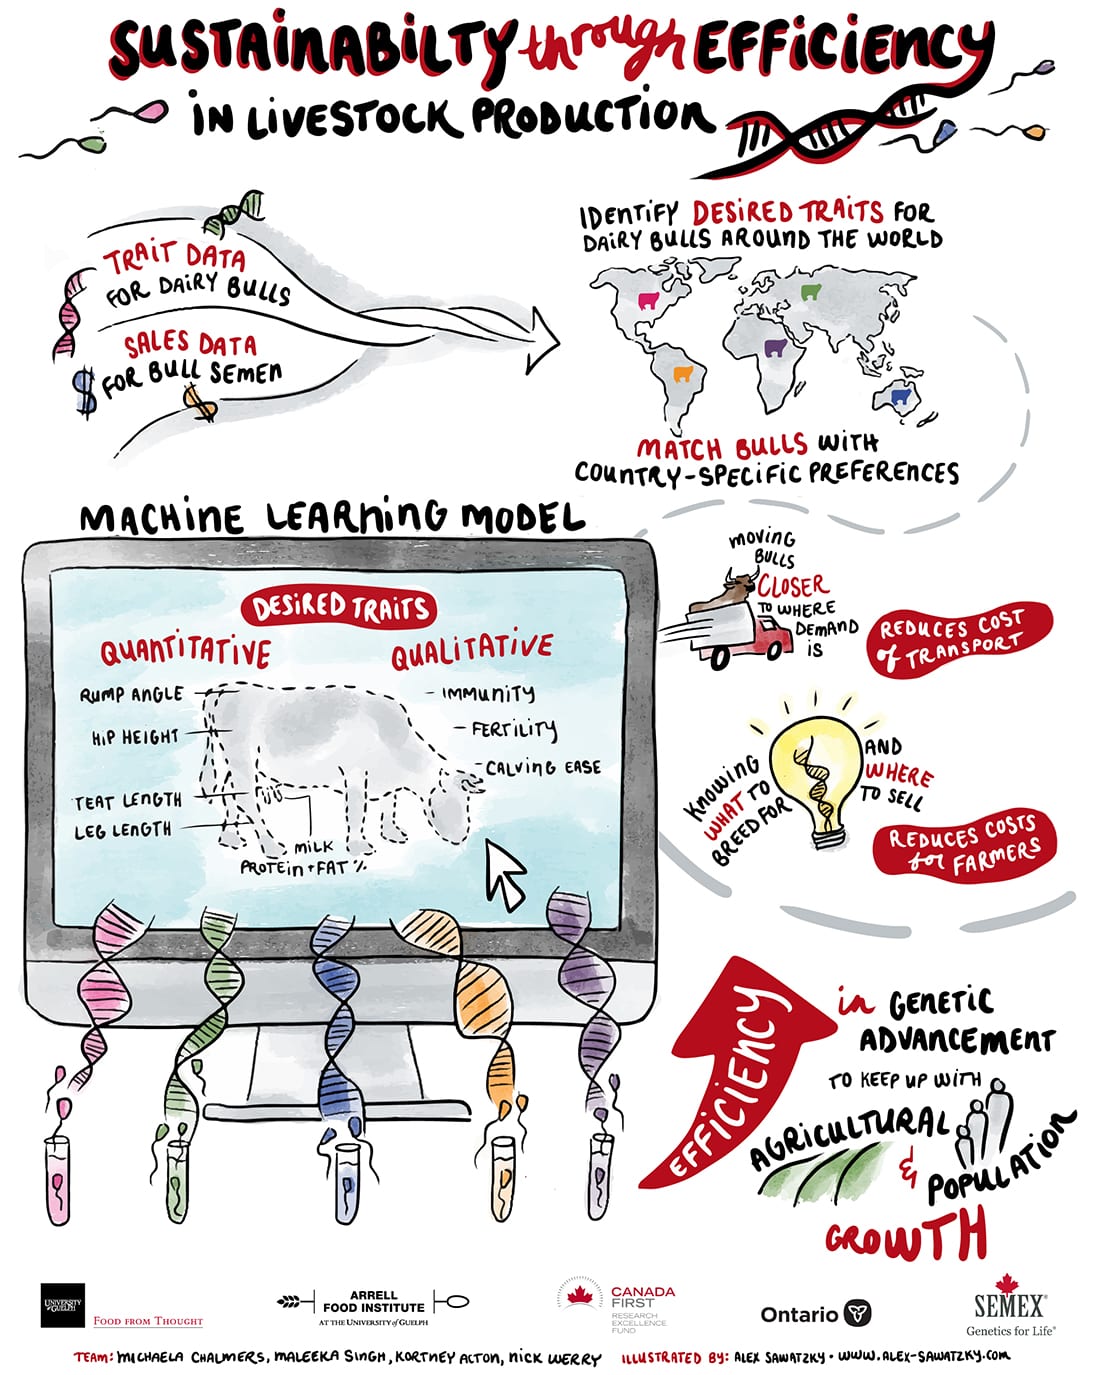 SUSTAINABILTY through EFFICIENCY
IN LIVESTOCK PRODUCTION
TRAIT DATA
FOR DAIRY BULLS
SALES DATA
FOR BULL SEMEN
IDENTIFY DESIRED TRAITS FOR
DAIRY BULLS AROUND THE WORLD
MATCH BULLS WITH
COUNTRY-SPECIFIC PREFERENCES
MACHINE LEARNING MODEL
DESIRED TRAITS
QUANTITATIVE
QUALITATIVE
RUMP ANGLE
HIP HEIGHT
TEAT LENGTH
LEG LENGTH
MILK
PROTEIN + FAT %
- IMMUNITY
- FERTILITY
- CALVING EASE
MOVING
BULLS
CLOSER
TO WHERE
DEMAND
IS
REDUCES COST
of TRANSPORT
KNOWING
WHAT TO
BREED FOR
AND
WHERE
TO SELL
REDUCES COSTS
for FARMERS
EFFICIENCY
in GENETIC
ADVANCEMENT
TO KEEP UP WITH
AGRICULTURAL
& POPULATION
GROWTH
UNIVERSITY
of GUELPH
FOOD FROM THOUGHT
ARRELL
FOOD INSTITUTE
AT THE UNIVERSITY of GUELPH
CANADA
FIRST
RESEARCH
EXCELLENCE
FUND
Ontario
SEMEX®
Genetics for Life®
TEAM: MICHAELA CHALMERS, MALEEKA SINGH, KORTNEY ACTON, NICK WERRY ILLUSTRATED BY: ALEX SAWATZKY • WWW.ALEX-SAWATZKY.COM